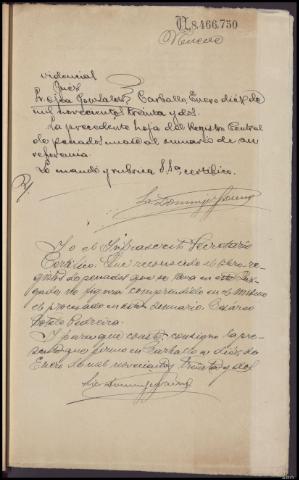 N.8.466.750
videncial
Juez
Carballo, Enero diez de
mil novecientos treinta y dos.
La precedente hoja del Registro Central
de penados únase al sumario de su
referencia.
Lo mandó y rubrica S.Sª, certifico.
Yo el Infrascrito Secretario
Certifico: Que reconocido el libro re-
gistro de penados que se lleva en este Juz-
gado no figura comprendido en el mismo
el procesado en este sumario Cesáreo
Pedreira.
Y para que conste, consigno la pre-
sente que firmo en Carballo a diez de
Enero de mil novecientos treinta y dos